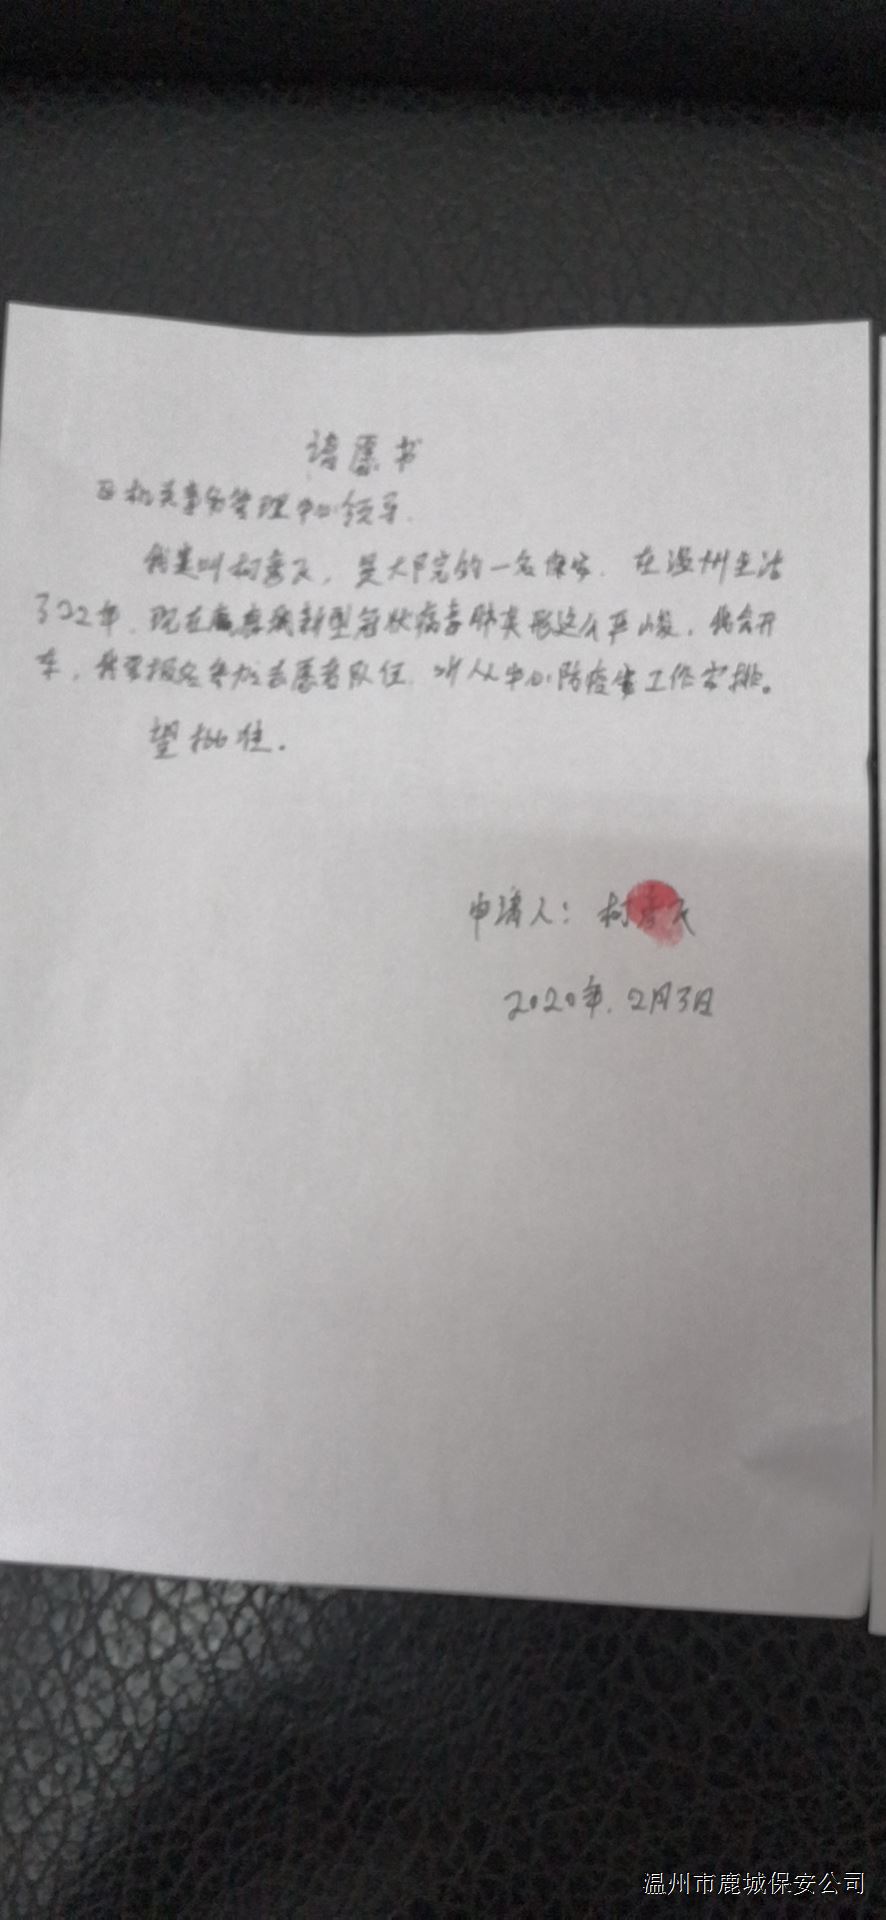 请愿书
机关事务管理中心领导.
我是叫柯秀飞, 是大院的一名保安. 在温州生活
了22年. 现在 新型冠状病毒肺炎形这么严峻, 我会开
车, 我要报名参加志愿者队伍. 听从中心防疫 工作安排。
望批准.
申请人: 柯
2020年. 2月3日
温州市鹿城保安公司